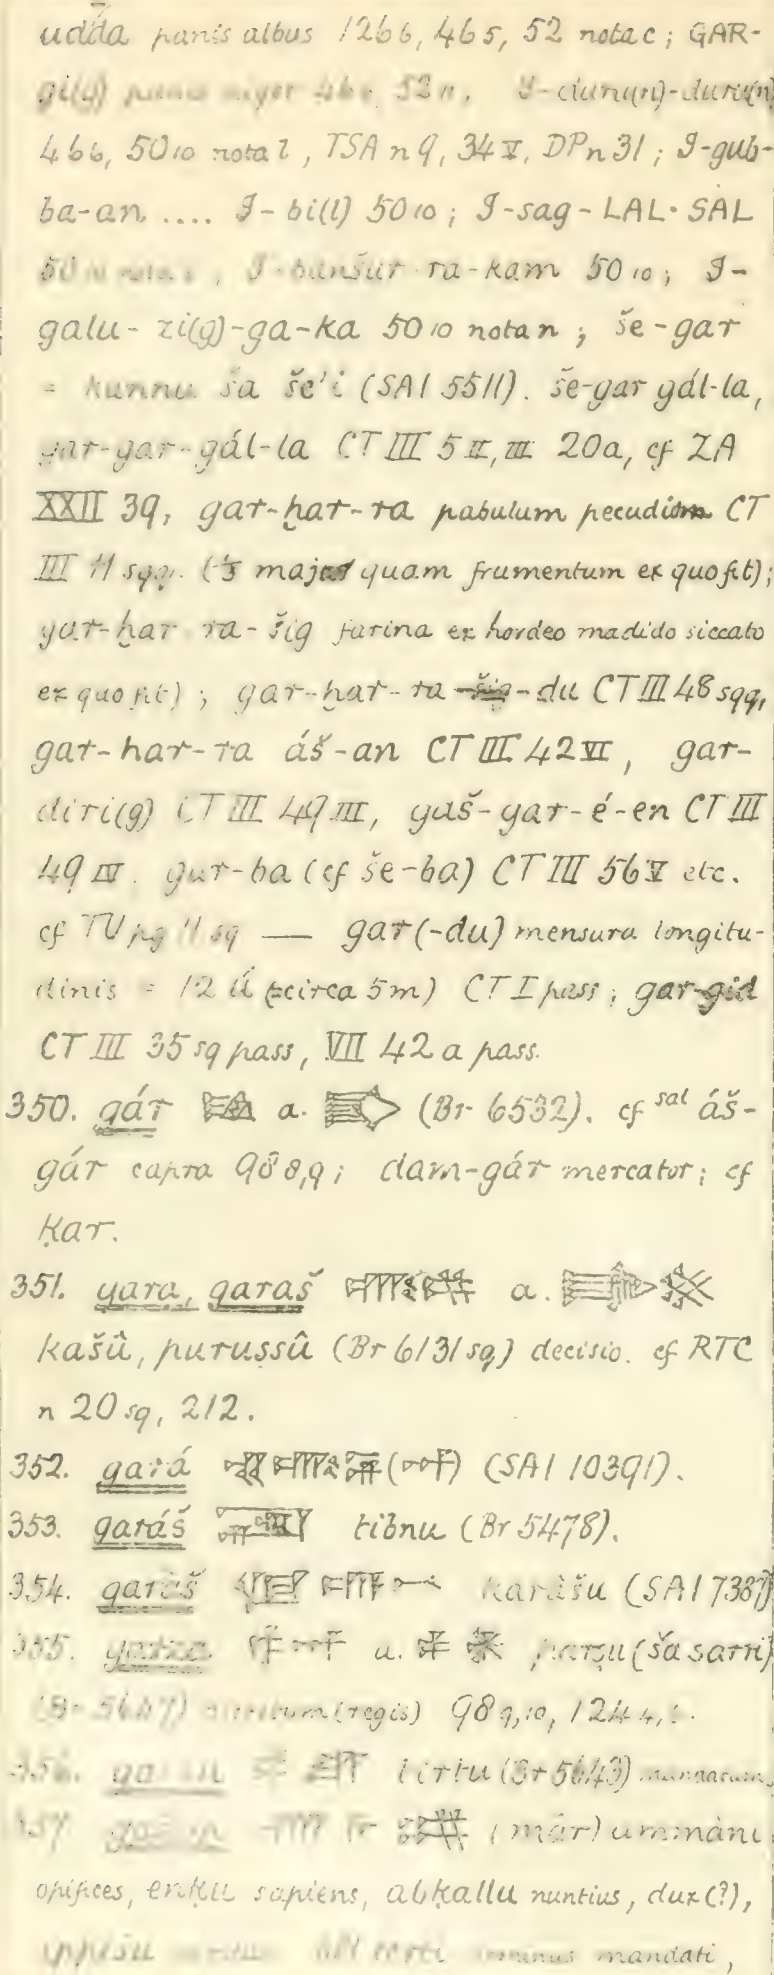 udda panis albus 126 6, 46 5, 52 nota c; GAR-
gi(g) panis niger 46 6, 52 n. G-duru(n)-duru(n)
46 6, 50 10 nota l, TSA n 9, 34 V, DP n 31; G-gub-
ba-an .... G-bi(l) 50 10; G-sag-LAL·SAL
50 10 nota, G-banšur-ra-kam 50 10; G-
galu-zi(g)-ga-ka 50 10 nota n; še-gar
= kunnu ša še'i (SAI 5511). še-gar gál-la,
gar-gar-gál-la CT III 5 II, III 20a, cf ZA
XXII 39, gar-ḫar-ra pabulum pecudum CT
III 11 sqq. (⅓ majus quam frumentum ex quo fit);
gar-ḫar-ra-šig farina ex hordeo madido siccato
ex quo fit); gar-ḫar-ra-šig-du CT III 48 sqq,
gar-har-ra áš-an CT III 42 VI, gar-
diri(g) CT III 49 III, gaš-gar-é-en CT III
49 IV. gar-ba (cf še-ba) CT III 56 V etc.
cf TU pg 11 sq — gar(-du) mensura longitu-
dinis = 12 ú (= circa 5m) CT I pass; gar-gid
CT III 35 sq pass, VII 42 a pass.
350. gár a. (Br 6532). cf sal áš-
gár capra 98 8,9; dam-gár mercator; cf
ḳar.
351. gara, garaš a.
kašû, purussû (Br 6131 sq) decisio. cf RTC
n 20 sq, 212.
352. gará (SAI 10391).
353. garáš tibnu (Br 5478).
354. garàš karâšu (SAI 7387)
355. garza a. parṣu (ša šarri)
(Br 5647) (regis) 98 9,10, 124 4,
356. tirtu (Br 5643)
357. (mâr) ummâni
opifices, enḳu sapiens, abḳallu nuntius, dux (?),
mandati,